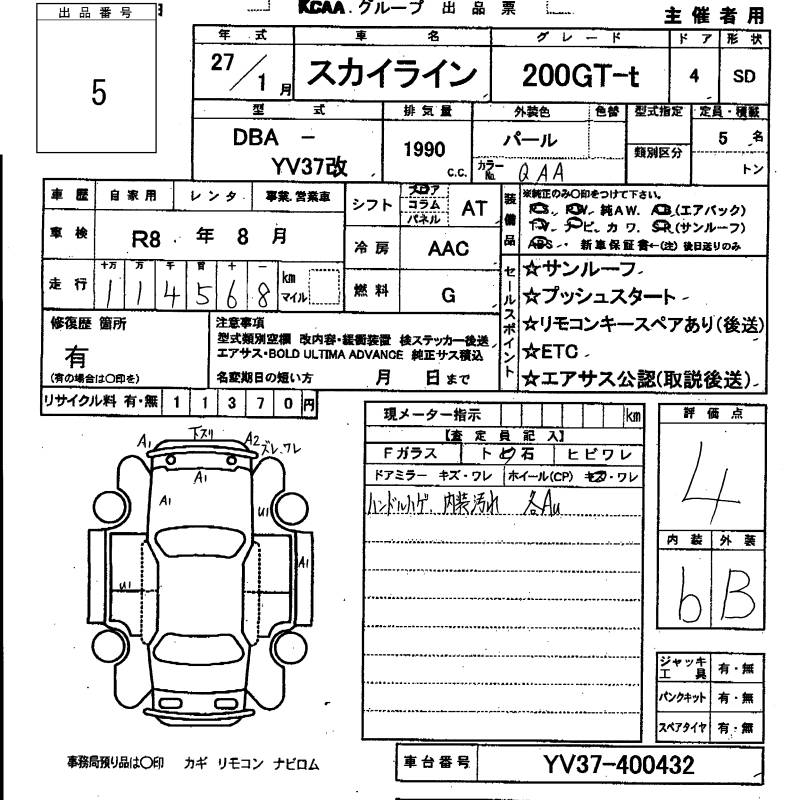 KCAA. グループ 出品票
主催者用
出品番号
5
年式 車名 グレード ドア 形状
27/1月 スカイライン 200GT-t 4 SD
型式 排気量 外装色 色替 型式指定 定員・積載
DBA - YV37改 1990 c.c. パール 類別区分 5 名
カラーNo. QAA トン
車歴 自家用 レンタ 事業.営業車
シフト フロア コラム パネル AT
装備品 ※純正のみ〇印をつけて下さい。
P.S. P.W. 純AW. A.B.(エアバック)
T.V ナビ. カワ. S.R(サンルーフ)
ABS. 新車保証書←(注) 後日送りのみ
車検 R8 年 8 月
冷房 AAC
走行 十万 万 千 百 十 一
1 1 4 5 6 8 km マイル
燃料 G
セールスポイント
☆サンルーフ
☆プッシュスタート
☆リモコンキースペアあり(後送)
☆ETC
☆エアサス公認(取説後送)
修復歴 箇所
有
(有の場合は〇印を)
注意事項
型式類別空欄 改内容・緩衝装置 検ステッカー後送
エアサス・BOLD ULTIMA ADVANCE 純正サス積込
名変期日の短い方 月 日まで
リサイクル料 有・無 1 1 3 7 0 円
現メーター指示 km
【査定員記入】
Fガラス ト 石 ヒビワレ
ドアミラー キズ・ワレ ホイール(CP) キズ・ワレ
ハンドルハゲ. 内装汚れ 各Au
評価点
4
内装 外装
b B
A1 下スリ A2 ズレ.ワレ
A1
A1
U1
A1
U1
ジャッキ工具 有・無
パンクキット 有・無
スペアタイヤ 有・無
事務局預り品は〇印 カギ リモコン ナビロム
車台番号 YV37-400432